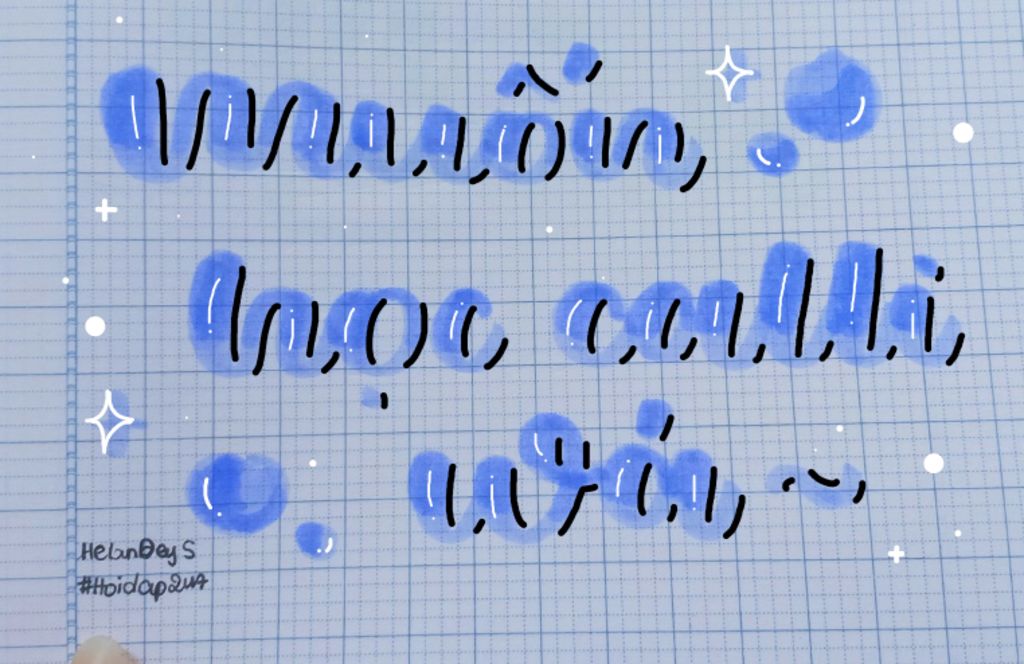 Muốn
học calli
wá ~
HelanDeyS
#Hoidap247